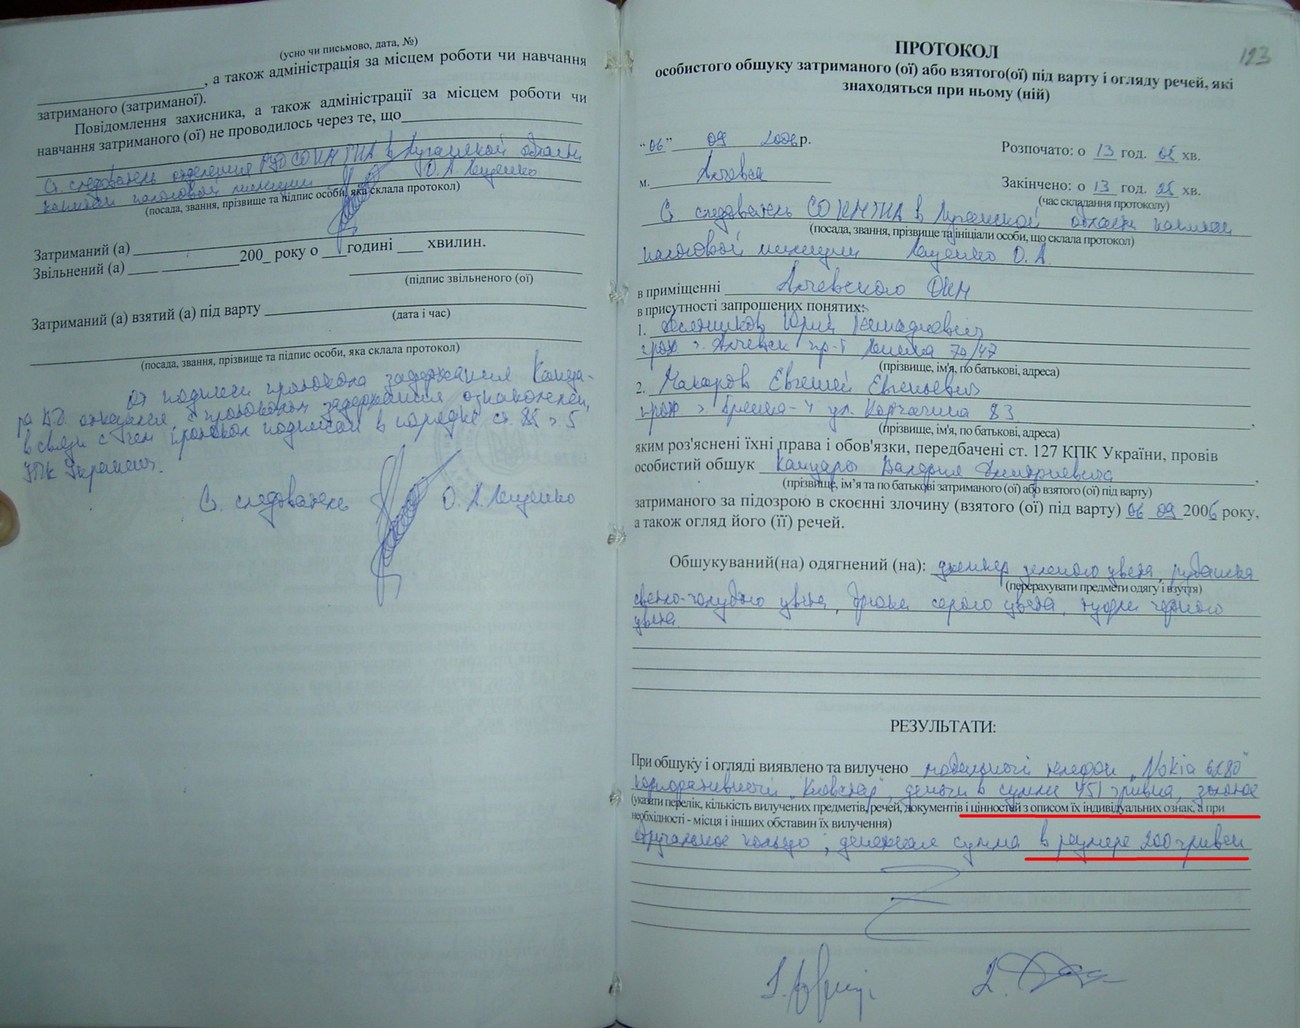 (усно чи письмово, дата, №)
, а також адміністрація за місцем роботи чи навчання
затриманого (затриманої).
Повідомлення захисника, а також адміністрації за місцем роботи чи
навчання затриманого (ої) не проводилось через те, що
Ст. следователь отделения СО ГНИ в Луганской области
капитан налоговой милиции О. А. Лященко
(посада, звання, прізвище та підпис особи, яка склала протокол)
Затриманий (а)
Звільнений (а) 200_ року о годині хвилин.
(підпис звільненого (ої)
Затриманий (а) взятий (а) під варту
(дата і час)
(посада, звання, прізвище та підпис особи, яка склала протокол)
От подписи протокола задержания
В.Д. отказался с протоколом задержания ознакомлен,
в связи с чем протокол подписан в порядке ст. 85 ч 5
УПК Украины.
Ст. следователь О. А. Лященко
123
ПРОТОКОЛ
особистого обшуку затриманого (ої) або взятого(ої) під варту і огляду речей, які
знаходяться при ньому (ній)
"06" 09 2006 р.
Розпочато: о 13 год. 02 хв.
м. Алчевск
Закінчено: о 13 год. 25 хв.
(час складання протоколу)
Ст. следователь в Луганской области капитан
(посада, звання, прізвище та ініціали особи, що склала протокол)
налоговой милиции Лященко О. А
в приміщенні Алчевского
в присутності запрошених понятих:
1. Юрий Геннадиевич
прож. г. Алчевск пр-т Ленина 70/47
(прізвище, ім'я, по батькові, адреса)
2. Макаров Евгений Евгеньевич
прож г. ул. 83
(прізвище, ім'я, по батькові, адреса)
яким роз'яснені їхні права і обов'язки, передбачені ст. 127 КПК України, провів
особистий обшук Валерия Дмитриевича
(прізвище, ім'я та по батькові затриманого (ої) або взятого (ої) під варту)
затриманого за підозрою в скоєнні злочину (взятого (ої) під варту) 06 09 2006 року,
а також огляд його (її) речей.
Обшукуваний(на) одягнений (на): джемпер зеленого цвета, рубашка
(перерахувати предмети одягу і взуття)
светло-голубого цвета, брюки серого цвета, туфли черного
цвета.
РЕЗУЛЬТАТИ:
При обшуку і огляді виявлено та вилучено мобильный телефон „Nokia 6280"
корпоративный „Киевстар", деньги в сумме 451 гривна, золотое
(указати перелік, кількість вилучених предметів, речей, документів і цінностей з описом їх індивідуальних ознак, а при
необхідності - місця і інших обставин їх вилучення)
обручальное кольцо; денежная сумма в размере 200 гривен
1.
2.